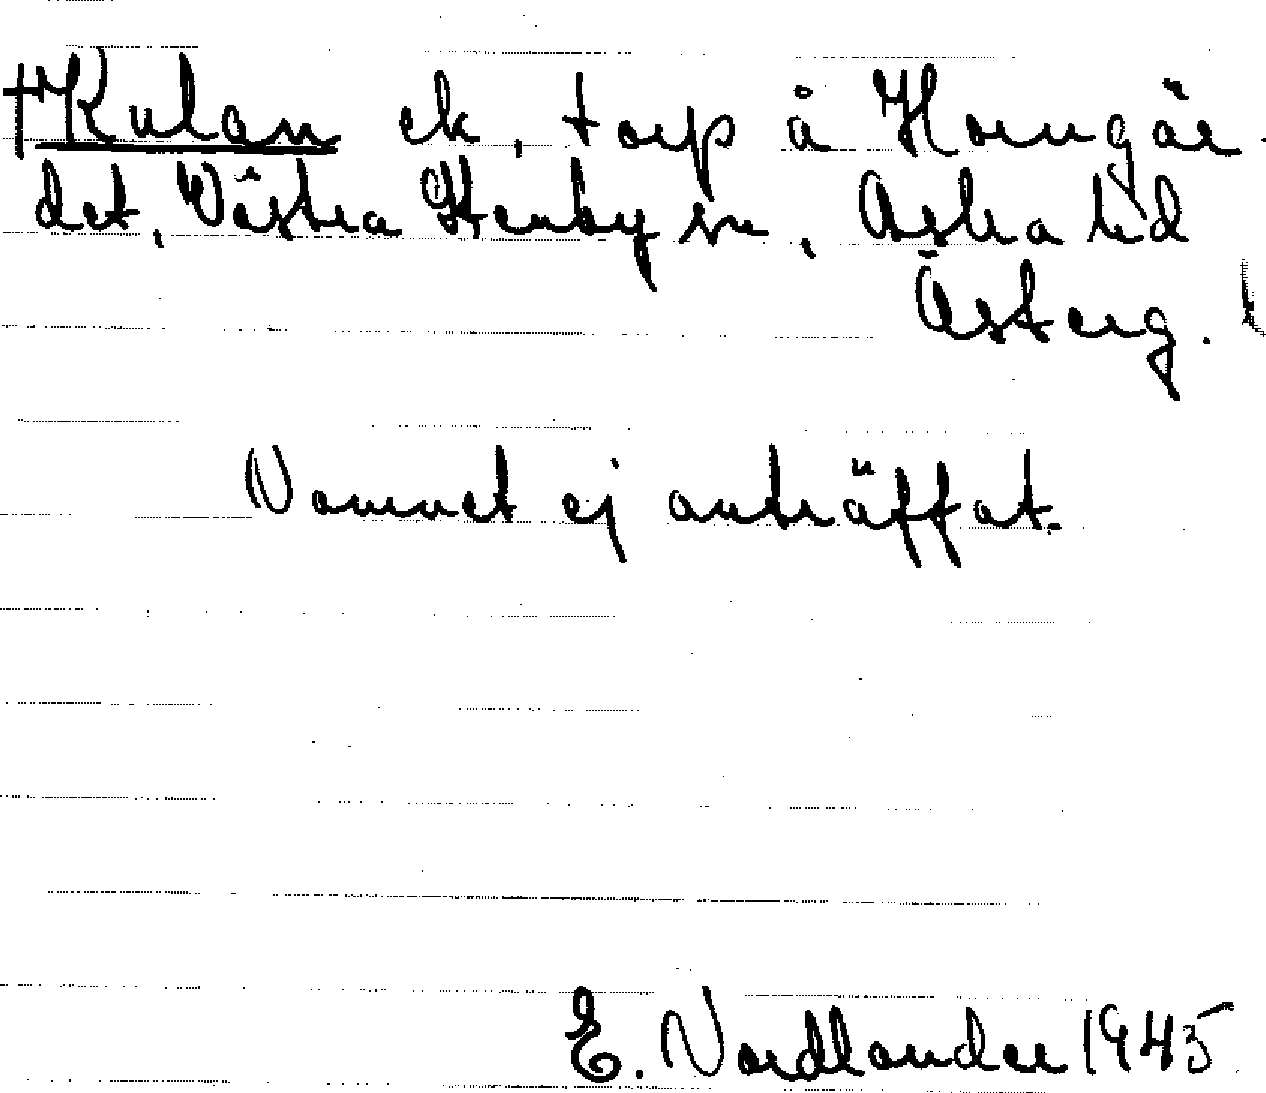 †Kulan ek, torp å Horngär-
det, Västra Stenby sn, Aska hd
Österg.
Namnet ej anträffat.
E. Nordlander 1945